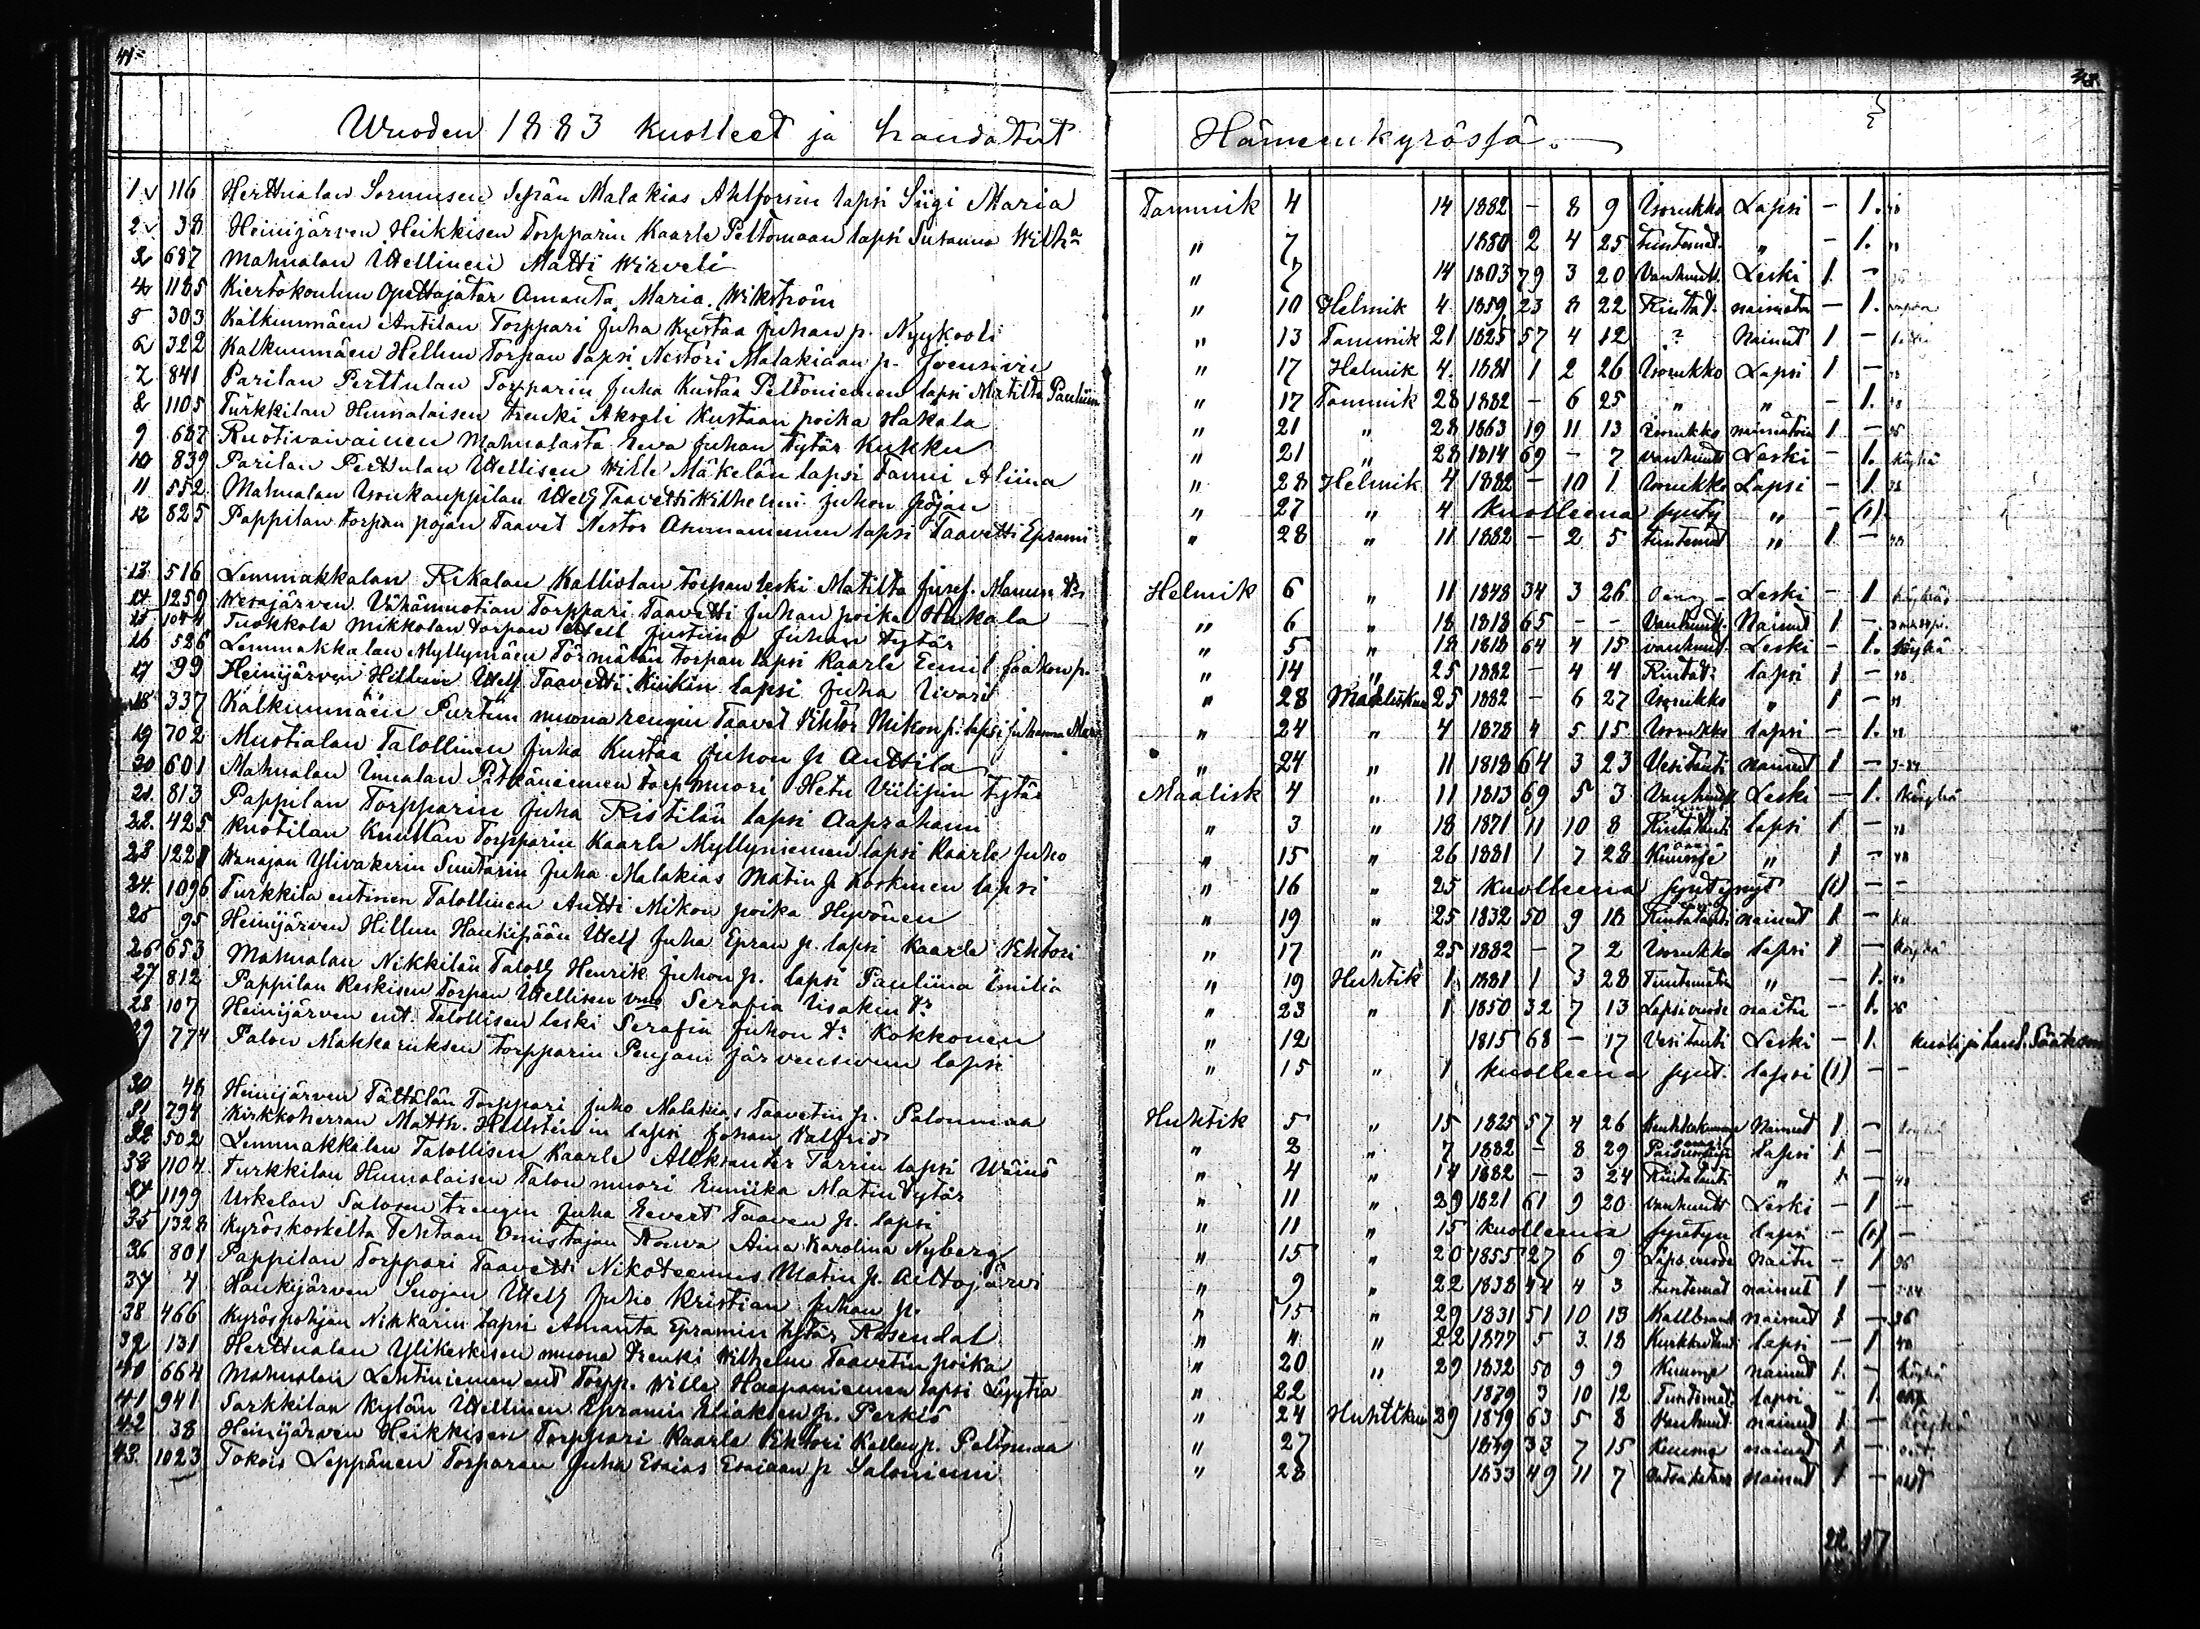 Wuoden 1883 kuolleet ja haudatut Hämeenkyrössä.
1 116 Herttualan Sormusen Sepän Malakias Ahlforsin lapsi Siigi Maria Tammik 4 14 1882 - 8 9 Isorukko Lapsi - 1.
2 38 Heinijärven Heikkisen Torpparin Kaarle Peltomaan lapsi Susanna Wilh:a " 7 1880 2 4 25 tuntemat. " - 1.
3 687 Mahnalan Itellinen Matti Wirveli " 7 14 1803 79 3 20 Vanhuutt. Leski 1 -
4 1185 Kiertokoulun Opettajatar Amanta Maria Wikström " 10 Helmik 4 1859 23 8 22 Rintat. naimaton - 1.
5 303 Kalkunmäen Antilan Torppari Juha Kustaa Juhan p. Nyykooli " 13 Tammik 21 1825 57 4 12 ? Nainut 1 -
6 322 Kalkunmäen Hellun Torpan lapsi Nestori Malakiaan p. Joensivu " 17 Helmik 4 1881 1 2 26 Isorukko Lapsi 1 -
7 841 Parilan Perttulan Torpparin Juha Kustaa Peltoniemen lapsi Matilta Pauliin " 17 Tammik 28 1882 - 6 25 " " - 1.
8 1105 Turkkilan Humalaisen trenki Akseli Kustaan poika Hakala " 21 " 28 1863 19 11 13 isorukko naimatoin 1 -
9 687 Ruotivaivainen Mahnalasta Eeva Juhan tytär Kukku " 21 " 28 1814 69 - 7 vanhuutt Leski - 1. köyhä
10 839 Parilan Perttulan Itellisen Wille Mäkelän lapsi Fanni Aliina " 28 Helmik 4 1882 - 10 1 Isorukko Lapsi - 1
11 552 Mahnalan Isonkauppilan Itell Taavetti Wilhelmi Juhon pojan " 27 " 4 kuolleena synty " - (1)
12 825 Pappilan torpan pojan Taavet Nestor Ahomaniemen lapsi Taavetti Eprami " 28 " 11 1882 - 2 5 tuntemat " 1 -
13 516 Lemmakkalan Rikalan Kalliolan torpan leski Matilta Jusef. Helmik 6 " 11 1848 34 3 26 Leski - 1 köyhä
14 1259 Wesajärven Vähämuotian Torppari Taavetti Juhan poika Hakala " 6 " 18 1818 65 - - Vanhuutt. Nainut 1 -
15 1044 Tuokkola Mikkolan torpan Itell Justiina Juhan tytär " 5 " 18 1818 64 4 15 vanhuut. Leski - 1. köyhä
16 526 Lemmakkalan Myllymäen Törmälän torpan lapsi Kaarle Eemil Jaakon p. " 14 " 25 1882 - 4 4 Rintat. lapsi 1 -
17 99 Heinijärven Hillun Itell Taavetti Kinkin lapsi Juha Iivari " 28 Maalisku 25 1882 - 6 27 Isorukko " 1 -
18 337 Kalkunmäen Purtun muona rengin Taavet Vihtor Mikon p. lapsi Juhanna Mari " 24 " 4 1878 4 5 15 Isorukko lapsi - 1.
19 702 Muotialan Talollinen Juha Kustaa Juhon p. Anttila " 24 " 11 1818 64 3 23 Vesitauti nainut 1 -
20 601 Mahnalan Uunalan Pitkäniemen torp muori Hetu Viilipin tytär Maalisk 4 " 11 1813 69 5 3 Vanhuutt Leski - 1. köyhä
21. 813 Pappilan Torpparin Juha Ristilän lapsi Aaprahami " 3 " 18 1871 11 10 8 Rintatauti lapsi 1 -
22. 425 Kuotilan Knuutlan Torpparin Kaarle Myllyniemen lapsi Kaarle Juho " 15 " 26 1881 1 7 28 Kuume " 1 -
23 Wanajan Ylivakerin Suutarin Juha Malakias Matin p. Koskinen lapsi " 16 " 25 kuolleena syntynyt (1) - -
24. 1096 Turkkila entinen Talollinen Antti Mikon poika Hyvönen " 19 " 25 1832 50 9 18 Rintatauti nainut 1 -
25 95 Heinijärven Hillun Haukipään Itell Juha Epran p. lapsi Kaarle Vihtori " 17 " 25 1882 - 7 2 Isorukko lapsi 1 - köyhä
26 653 Mahnalan Nikkilän Taloll Henrik Juhon p. lapsi Pauliina Emilia " 19 Huhtik 1 1881 1 3 28 Tuntematon " - 1.
27 812 Pappilan Keskisen Torpan Itellisen vmo Serafia Iisakin tr " 23 " 1 1850 32 7 13 Lapsivuode naitu - 1.
28 107 Heinijärven ent. Talollisen leski Serafia Juhon tr Kokkonen " 12 1815 68 - 17 Vesitauti Leski - 1. kuoli ja haud.
29 774 Palon Makkaruksen torpparin Penjami Järvensivun lapsi " 15 " 1 kuolleena synt. lapsi (1) - -
30 46 Heinijärven Tättälän Torppari Juho Malakias Taavetin p. Palonmaa Huhtik 5 " 15 1825 57 4 26 Nainut 1 -
31 794 Kirkkoherran Matth. Hellstenin lapsi Johan Valfrid " 2 " 7 1882 - 8 29 lapsi 1 -
32 502 Lemmakkalan Talollisen Kaarle Aleksanter Tarrin lapsi Wäinö " 4 " 14 1882 - 3 24 Rintatauti " 1 -
33 1104 Turkkilan Humalaisen Talon muori Eeniika Matin tytär " 11 " 29 1821 61 9 20 vanhuutt Leski - 1 -
34 1199 Uskelan Salosen trengin Juha Eevert Taaven p. lapsi " 11 " 15 kuolleena syntyn lapsi - (1) -
35 1328 Kyröskoskelta Tehtaan Omistajan Rouva Aina Karolina Nyberg " 15 " 20 1855 27 6 9 Laps.vuode Naitu - 1
36 801 Pappilan Torppari Taavetti Nikoteemus Matin p. Aittojärvi " 9 " 22 1838 44 4 3 tuntemat nainut 1 -
37 4 Haukijärven Suojan Itell Juho Kristian Juhan p. " 15 " 29 1831 51 10 13 nainut 1 -
38 466 Kyröspohjan Nikkärin lapsi Amanta Epramin tytär Rosendal " 4 " 22 1877 5 3 18 Kurkkutaut lapsi - 1
39 131 Herttualan Ylikerkisen muona trenki Wilhelm Taavetin poika " 20 " 29 1832 50 9 9 Kuume nainut 1. - köyhä
40 664 Mahnalan Lentiniemen ent Torpp. Wille Haapaniemen lapsi Lyytia " 22 1879 3 10 12 Tuntemat. lapsi - 1.
41 941 Sarkkilan kylän Itellinen Epramin Eliaksen p. Perklö " 24 Huhtikuu 29 1819 63 5 8 Vanhuut nainut 1 - köyhä
42 38 Heinijärven Heikkisen Torppari Kaarle Vihtori Kallen p. Peltomaa " 27 1849 33 7 15 Kuume nainut 1 -
43. 1023 Tokois Leppänen Torparan Juha Esaias Esaiaan p Saloniemi " 28 1833 49 11 7 nainut 1 -
22. 17